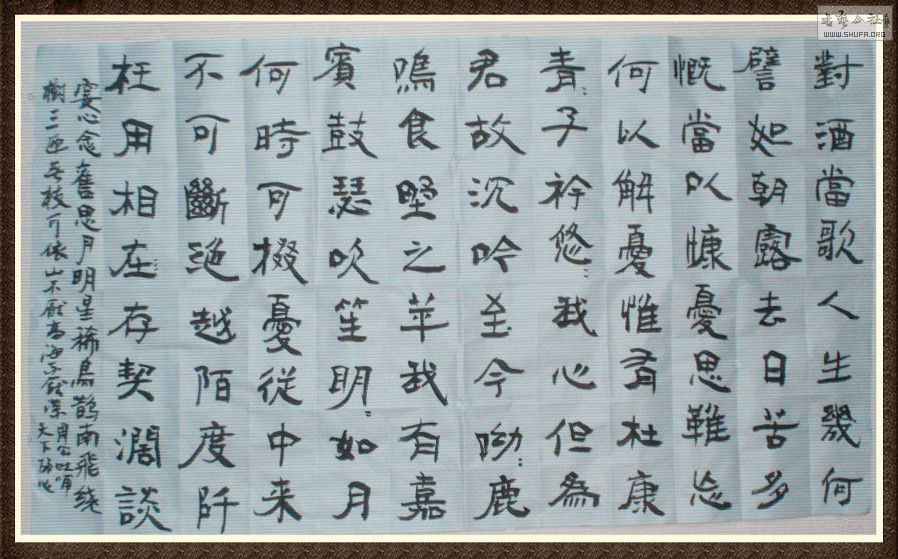 對酒當歌人生幾何
譬如朝露去日苦多
慨當以慷憂思難忘
何以解憂惟有杜康
青:子衿悠:我心但為
君故沉吟至今呦:鹿
鳴食埜之苹我有嘉
賓鼓瑟吹笙明:如月
何時可掇憂從中来
不可斷绝越陌度阡
枉用相在存契濶談
宴心念舊思月明星稀烏鹊南飛绕
樹三匝枝可依山不厭高海不厭深周公吐哺
天下歸心
WWW.SHUFA.ORG